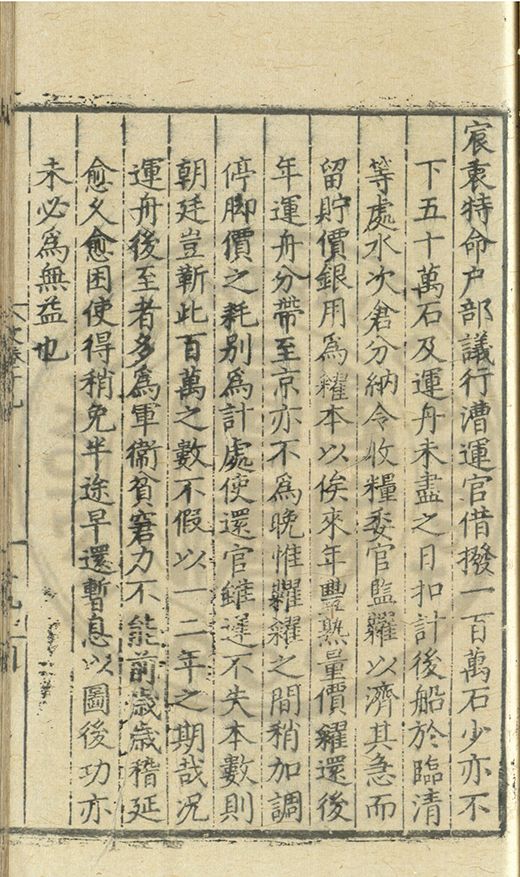 宸衷特命户部議行漕運官借撥一百萬石少亦不
下五十萬石及運舟未盡之日扣計後船於臨清
等處水次倉分納令收糧委官監糶以濟其急而
留貯價銀用爲糴本以俟來年豐熟量價糴還後
年運舟分帶至京亦不爲晚惟糶糴之間稍加調
停脚價之耗别爲計處使還官雖遲不失本數則
朝廷豈靳此百萬之數不假以一二年之期哉况
運舟後至者多爲軍衞貧窘力不能前歲歲稽延
愈久愈困使得稍免半途早還暫息以圖後功亦
未必爲無益也